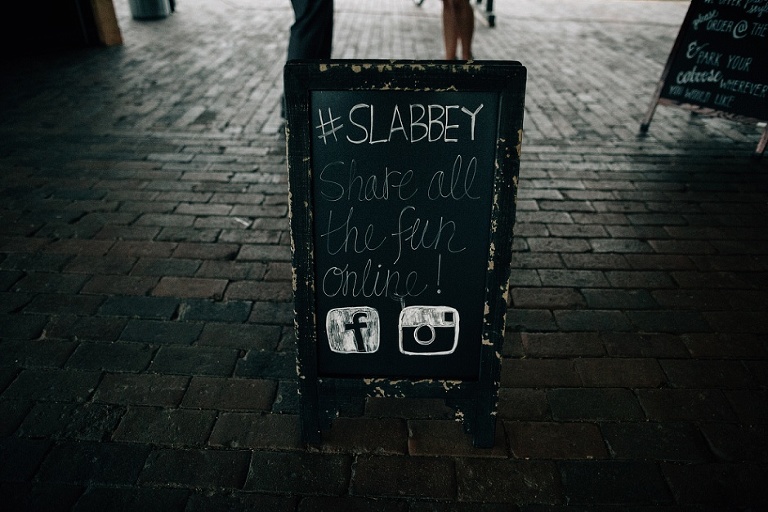 #SLABBEY
Share all
the fun
online!
f
please
ORDER @ THE
& PARK YOUR
caboose WHEREVER
YOU WOULD LIKE